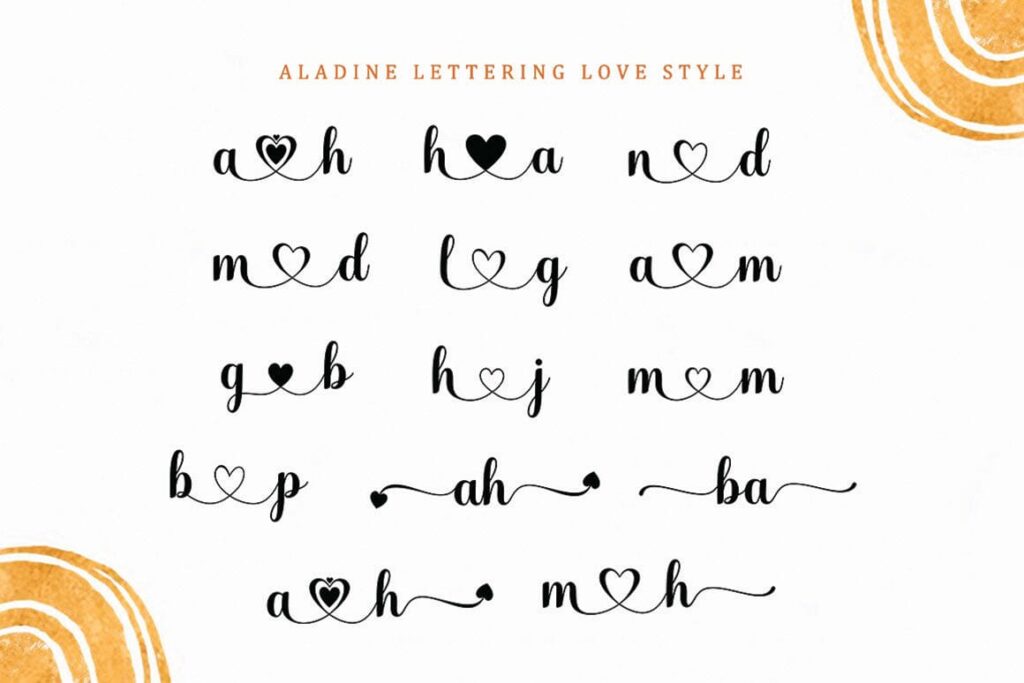 ALADINE LETTERING LOVE STYLE
a h h a n d
m d l g a m
g b h j m m
b p ah ba
a h m h